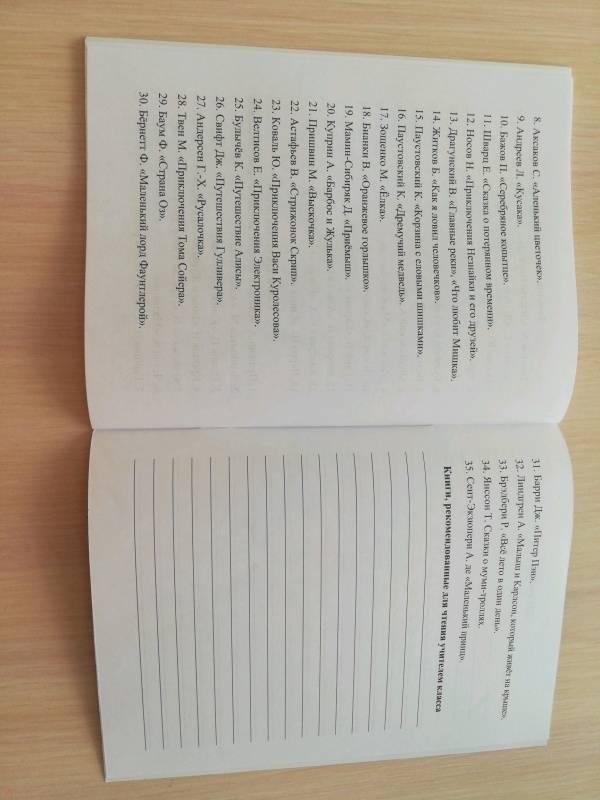 8. Аксаков С. «Аленький цветочек».
9. Андреев Л. «Кусака».
10. Бажов П. «Серебряное копытце».
11. Шварц Е. «Сказка о потерянном времени».
12. Носов Н. «Приключения Незнайки и его друзей».
13. Драгунский В. «Главные реки», «Что любит Мишка».
14. Житков Б. «Как я ловил человечков».
15. Паустовский К. «Корзина с еловыми шишками».
16. Паустовский К. «Дремучий медведь».
17. Зощенко М. «Ёлка».
18. Бианки В. «Оранжевое горлышко».
19. Мамин-Сибиряк Д. «Приёмыш».
20. Куприн А. «Барбос и Жулька».
21. Пришвин М. «Выскочка».
22. Астафьев В. «Стрижонок Скрип».
23. Коваль Ю. «Приключения Васи Куролесова».
24. Велтисов Е. «Приключения Электроника».
25. Булычёв К. «Путешествие Алисы».
26. Свифт Дж. «Путешествия Гулливера».
27. Андерсен Г.-Х. «Русалочка».
28. Твен М. «Приключения Тома Сойера».
29. Баум Ф. «Страна Оз».
30. Бёрнетт Ф. «Маленький лорд Фаунтлерой».
31. Барри Дж. «Питер Пэн».
32. Линдгрен А. «Малыш и Карлсон, который живёт на крыше».
33. Брэдбери Р. «Всё лето в один день».
34. Янссон Т. Сказки о муми-троллях.
35. Сент-Экзюпери А. де «Маленький принц».
Книги, рекомендованные для чтения учителем класса